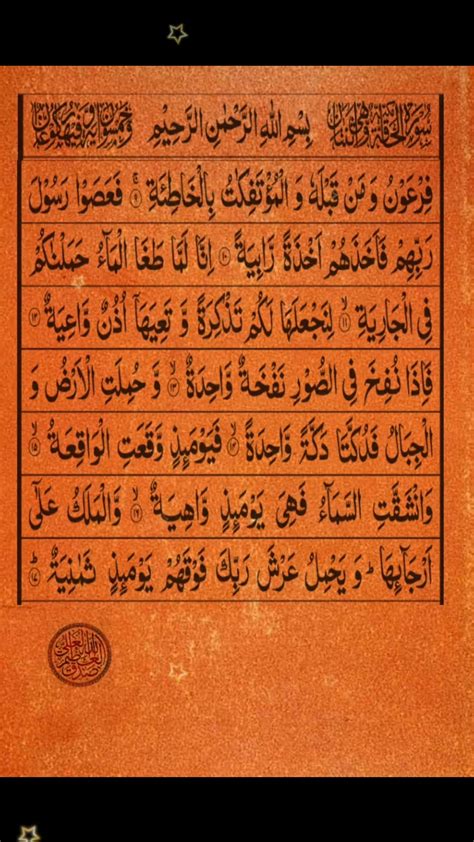 سُوْرَةُ الْحَآقَّةِ بِسْمِ اللهِ الرَّحْمٰنِ الرَّحِيْمِ
فِرْعَوْنُ وَ مَنْ قَبْلَهٗ وَ الْمُؤْتَفِكٰتُ بِالْخَاطِئَةِ ۚ﴿۹﴾ فَعَصَوْا رَسُوْلَ
رَبِّهِمْ فَاَخَذَهُمْ اَخْذَةً رَّابِيَةً ﴿۱۰﴾ اِنَّا لَمَّا طَغَا الْمَآءُ حَمَلْنٰكُمْ
فِي الْجَارِيَةِ ۙ﴿۱۱﴾ لِنَجْعَلَهَا لَكُمْ تَذْكِرَةً وَّ تَعِيَهَاۤ اُذُنٌ وَّاعِيَةٌ ﴿۱۲﴾
فَاِذَا نُفِخَ فِي الصُّوْرِ نَفْخَةٌ وَّاحِدَةٌ ۙ﴿۱۳﴾ وَّ حُمِلَتِ الْاَرْضُ وَ
الْجِبَالُ فَدُكَّتَا دَكَّةً وَّاحِدَةً ۙ﴿۱۴﴾ فَيَوْمَئِذٍ وَّقَعَتِ الْوَاقِعَةُ ۙ﴿۱۵﴾
وَانْشَقَّتِ السَّمَآءُ فَهِيَ يَوْمَئِذٍ وَّاهِيَةٌ ۙ﴿۱۶﴾ وَّالْمَلَكُ عَلٰۤى
اَرْجَآئِهَا ؕ وَ يَحْمِلُ عَرْشَ رَبِّكَ فَوْقَهُمْ يَوْمَئِذٍ ثَمٰنِيَةٌ ؕ﴿۱۷﴾
صدق الله العلي العظيم